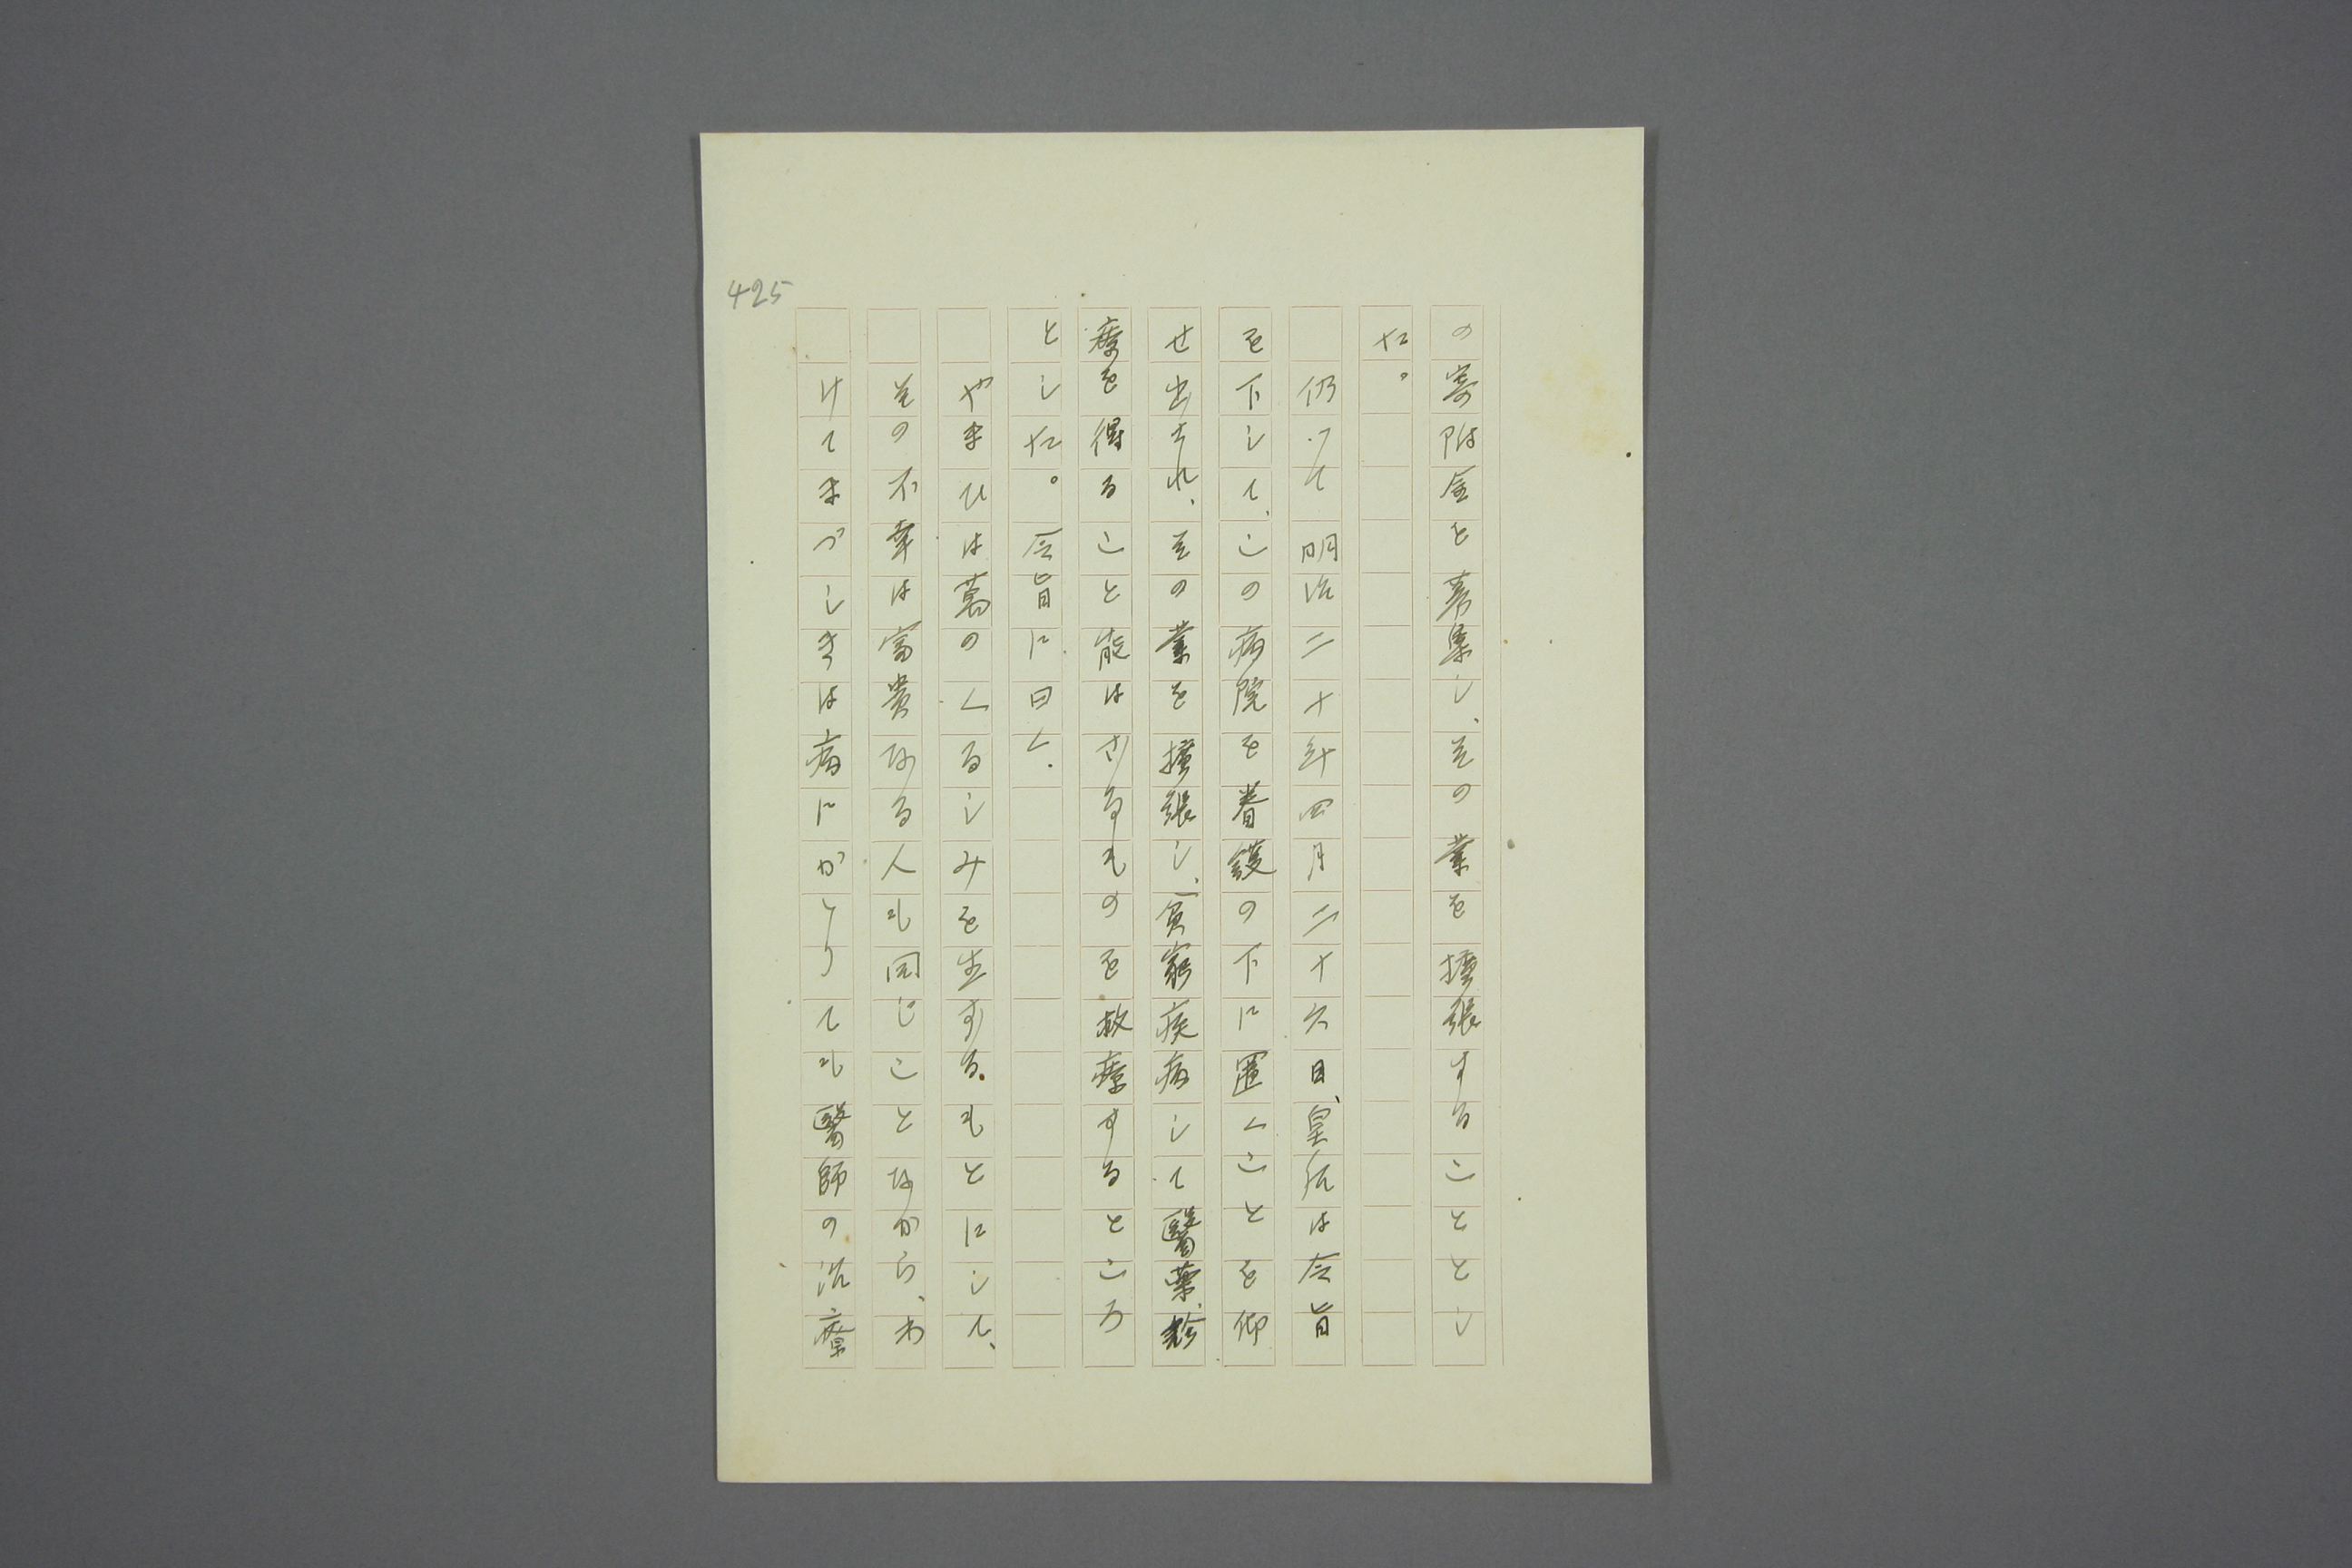 425
の寄附金を募集し、その業を擴張することとし
た。
仍つて明治二十年四月二十六日、皇后は令旨
を下して、この病院を眷護の下に置くことを仰
せ出され、その業を擴張し、貧窮疾病して醫藥、診
療を得ること能はざるものを救療するところ
とした。令旨に曰く、
やまひは萬のくるしみを生ずるもとにして、
その不幸は富貴なる人も同じことながら、わ
けてまづしきは病にかゝりても醫師の治療